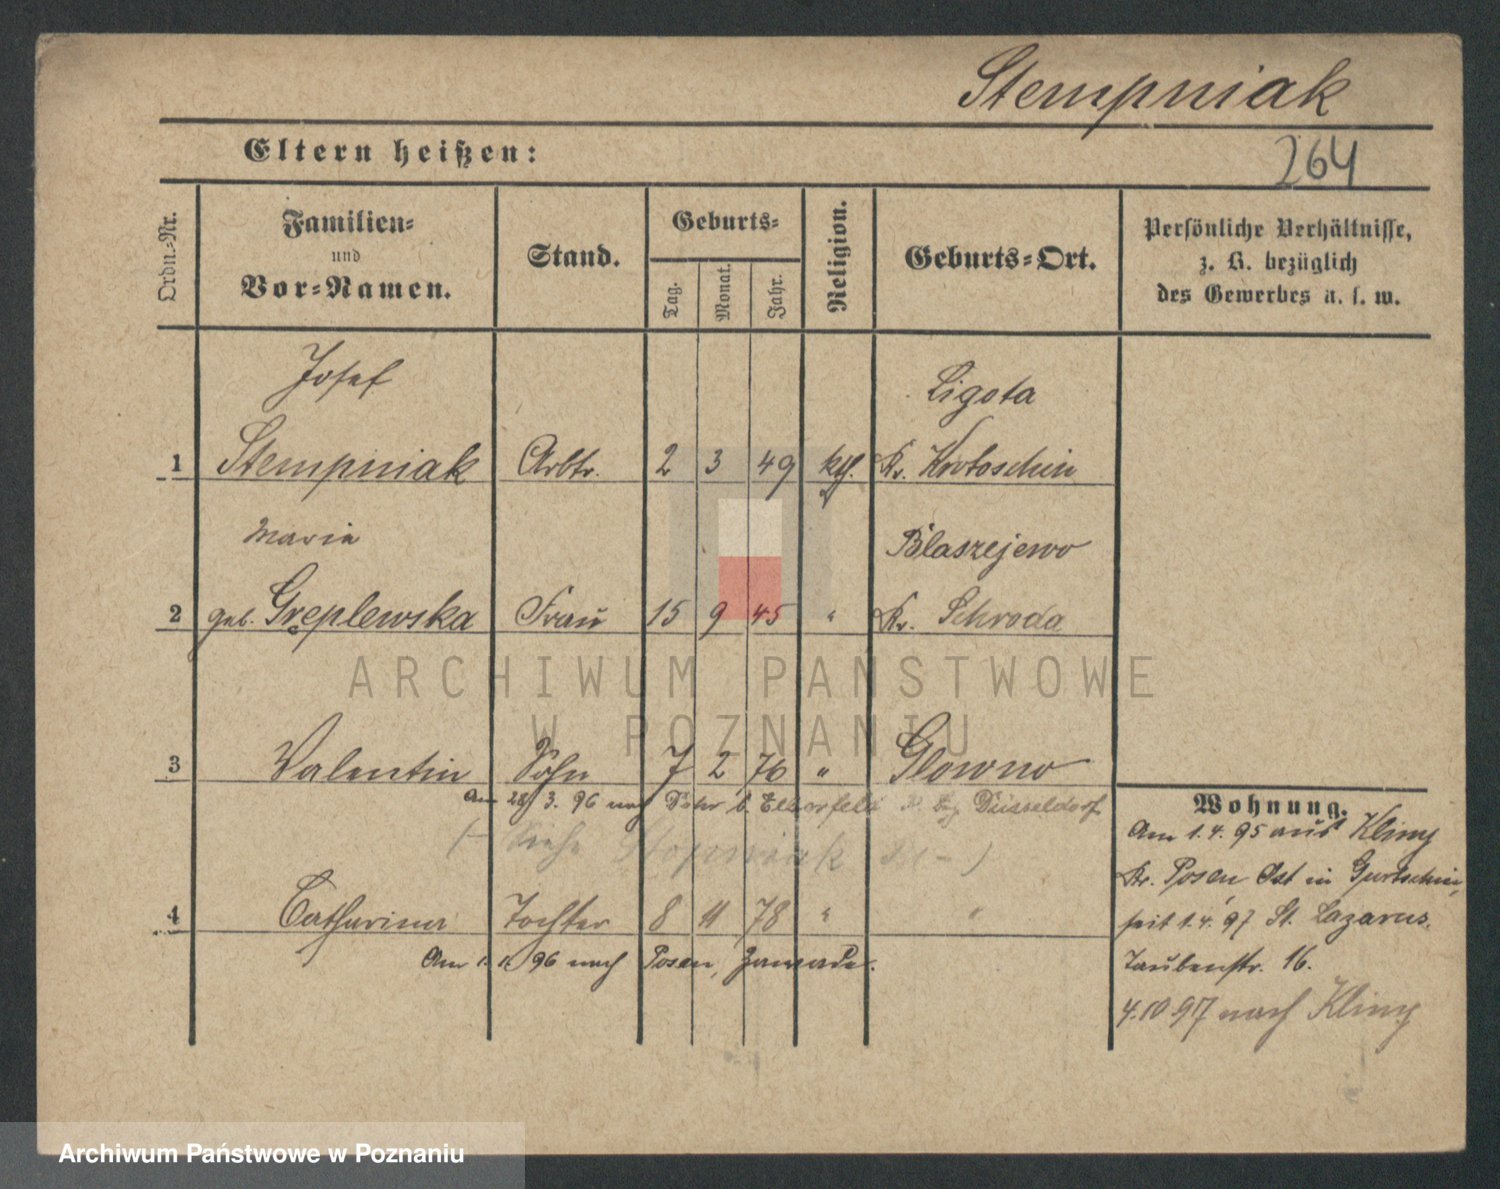 Stempniak
Eltern heißen:
264
Ordn.-Nr.
Familien-
und
Vor-Namen.
Stand.
Geburts-
Tag.
Monat.
Jahr.
Religion.
Geburts-Ort.
Persönliche Verhältnisse,
z. B. bezüglich
des Gewerbes u. s. w.
Josef Ligota
1 Stempniak Arbtr. 2 3 49 kth. Kr. Krotoschin
Maria Blaszejewo
2 geb. Gręplewska Frau 15 9 45 " Kr. Schroda
3 Valentin Sohn 7 2 76 " Glowno
Am 28/3. 96 nach b. Elberfeld Düsseldorf
(- Siehe Stopniak -)
4 Catharina Tochter 8 11 78 " "
Am 1. 96 nach Posen,
Wohnung.
Am 1.4.95 aus Kliny
Kr. Posen Ost in Gurtschin,
seit 1.4.97 St. Lazarus,
Taubenstr. 16.
4.10.97 nach Kliny
ARCHIWUM PAŃSTWOWE
W POZNANIU
Archiwum Państwowe w Poznaniu